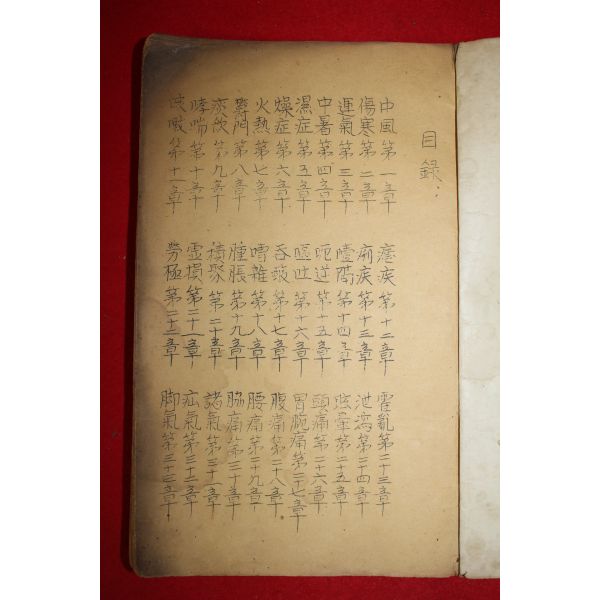 目錄
中風第一章
傷寒第二章
運氣第三章
中暑第四章
濕症第五章
燥症第六章
火熱第七章
鬱門第八章
痰飮第九章
哮喘第十章
咳嗽第十一章
瘧疾第十二章
痢疾第十三章
噎膈第十四章
呃逆第十五章
嘔吐第十六章
吞酸第十七章
嘈雜第十八章
腫脹第十九章
積聚第二十章
虛損第二十一章
勞極第二十二章
霍亂第二十三章
泄瀉第二十四章
眩暈第二十五章
頭痛第二十六章
胃脘痛第二十七章
腹痛第二十八章
腰痛第二十九章
脇痛第三十章
諸氣第三十一章
疝氣第三十二章
脚氣第三十三章